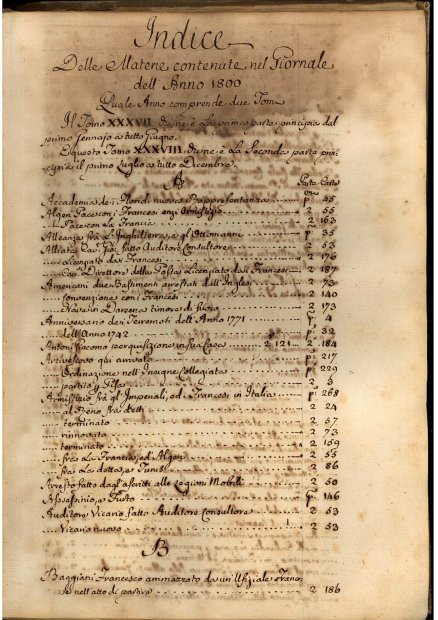 Indice
Delle Materie contenute nel Giornale
dell'Anno 1800
Quale Anno comprende due Tomi
Il Tomo XXXVII che ne è la prima parte principia dal
primo Gennaro a tutto Giugno.
E questo Tomo XXXVIII che ne è la Seconda parte prin
cipia il primo Luglio a tutto Dicembre.
A
Parte Carte
Accademia de Floridi nuova Rappresentanza p. 45
Algeri Pace con i Francesi anzi Armistizio 2 55
Pace con la Francia 2 163
Alleanza frà l'Inghilterra, e gl'Ottomanni p. 35
Alliata Cav. fatto Auditore Consultore 2 53
Licenziato dai Francesi 2 176
Cav. Direttore della Posta Licenziato dai Francesi 2 187
Americani due Bastimenti arrestati dall'Inglesi 2 73
convenzione con i Francesi 2 140
Nave in Darsena timore di fuoco 2 173
Anniversario de Terremoti dell'Anno 1771 p. 4
dell'Anno 1742 p. 32
Antoni Giacomo perquisizione in sua Casa 2 121 2 184
Arcivescovo qui arrivato p. 217
Ordinazione nell'Insigne Collegiata p. 229
partito p. Pisa 2 5
Armistizio frà gl'Imperiali, ed i Francesi in Italia p. 268
al Reno frà detti 2 24
terminato 2 57
rinnovato 2 73
terminato 2 159
frà la Francia, ed Algeri 2 55
frà la detta, e Tunisi 2 86
Arresto fatto dagl'ascritti alle Legioni Mobili 2 50
Assassinio, e Furto p. 146
Auditore Vicario fatto Auditore Consultore 2 53
Vicario nuovo 2 53
B
Baggiani Francesco ammazzato da un Ufiziale Franc
se nell'atto di partire 2 186